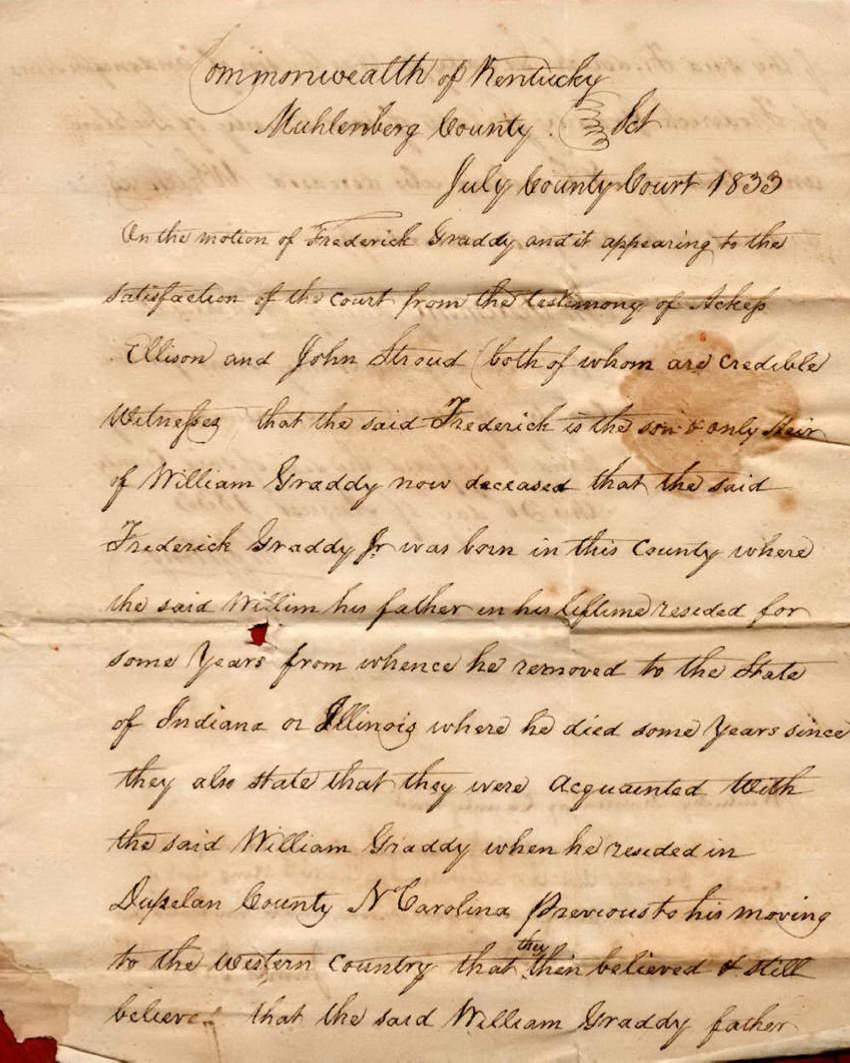 Commonwealth of Kentucky
Muhlenberg County. Sct
July County Court 1833
On the motion of Frederick Graddy and it appearing to the
satisfaction of the court from the testimony of Ackess
Ellison and John Stroud (both of whom are credible
Witnesses that the said Frederick is the son & only Heir
of William Graddy now deceased that the said
Frederick Graddy Jr was born in this County where
the said Willim his father in his liftime resided for
some Years from whence he removed to the State
of Indiana or Illinois where he died some Years since
they also state that they were acquainted With
the said William Graddy when he resided in
Duplan County N Carolina previous to his moving
to the Western Country that they then believed & still
believe that the said William Graddy father